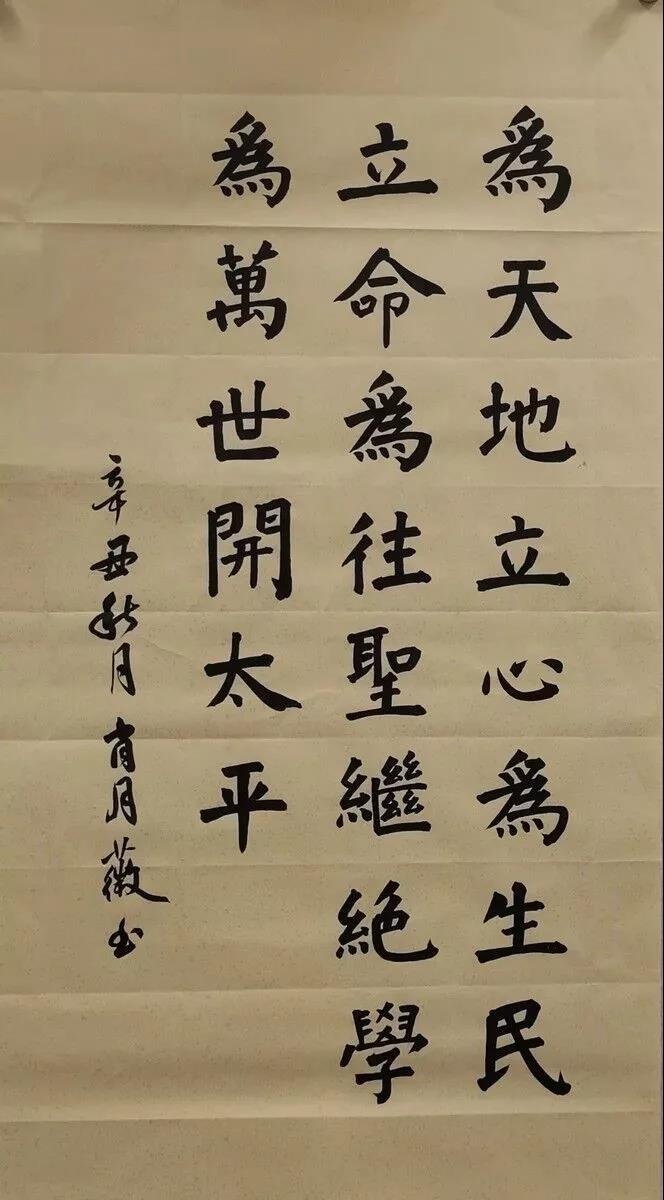 為天地立心為生民
立命為往聖繼絕學
為萬世開太平
辛丑秋月肖月薇书